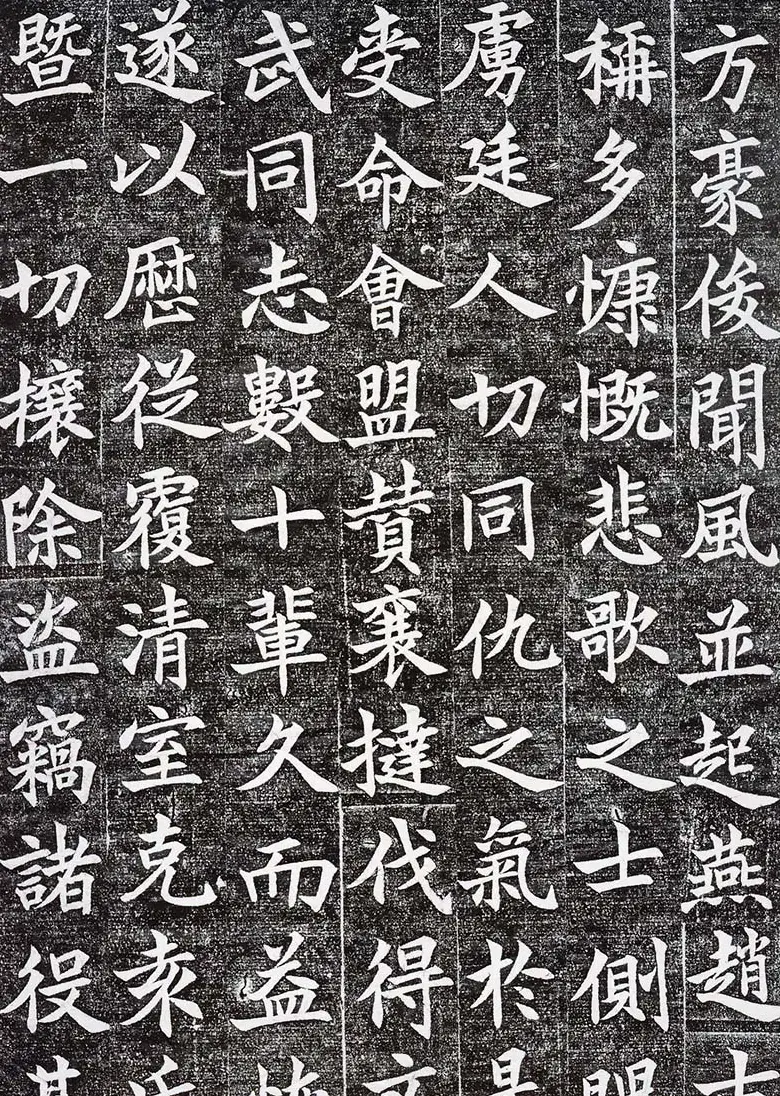 方豪俊聞風並起燕趙士
稱多慷慨悲歌之士側
虜廷人切同仇之氣於是
受命會盟贊襄撻伐得文
武同志數十輩久而益
遂以歷從覆清室克袁氏
暨一切攘除盜竊諸役其